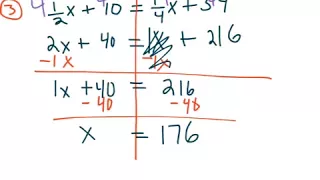 ③ 4 1/2x + 10 = 1/4x + 54
2x + 40 = 1x + 216
-1x -1x
1x + 40 = 216
-40 -40
x = 176